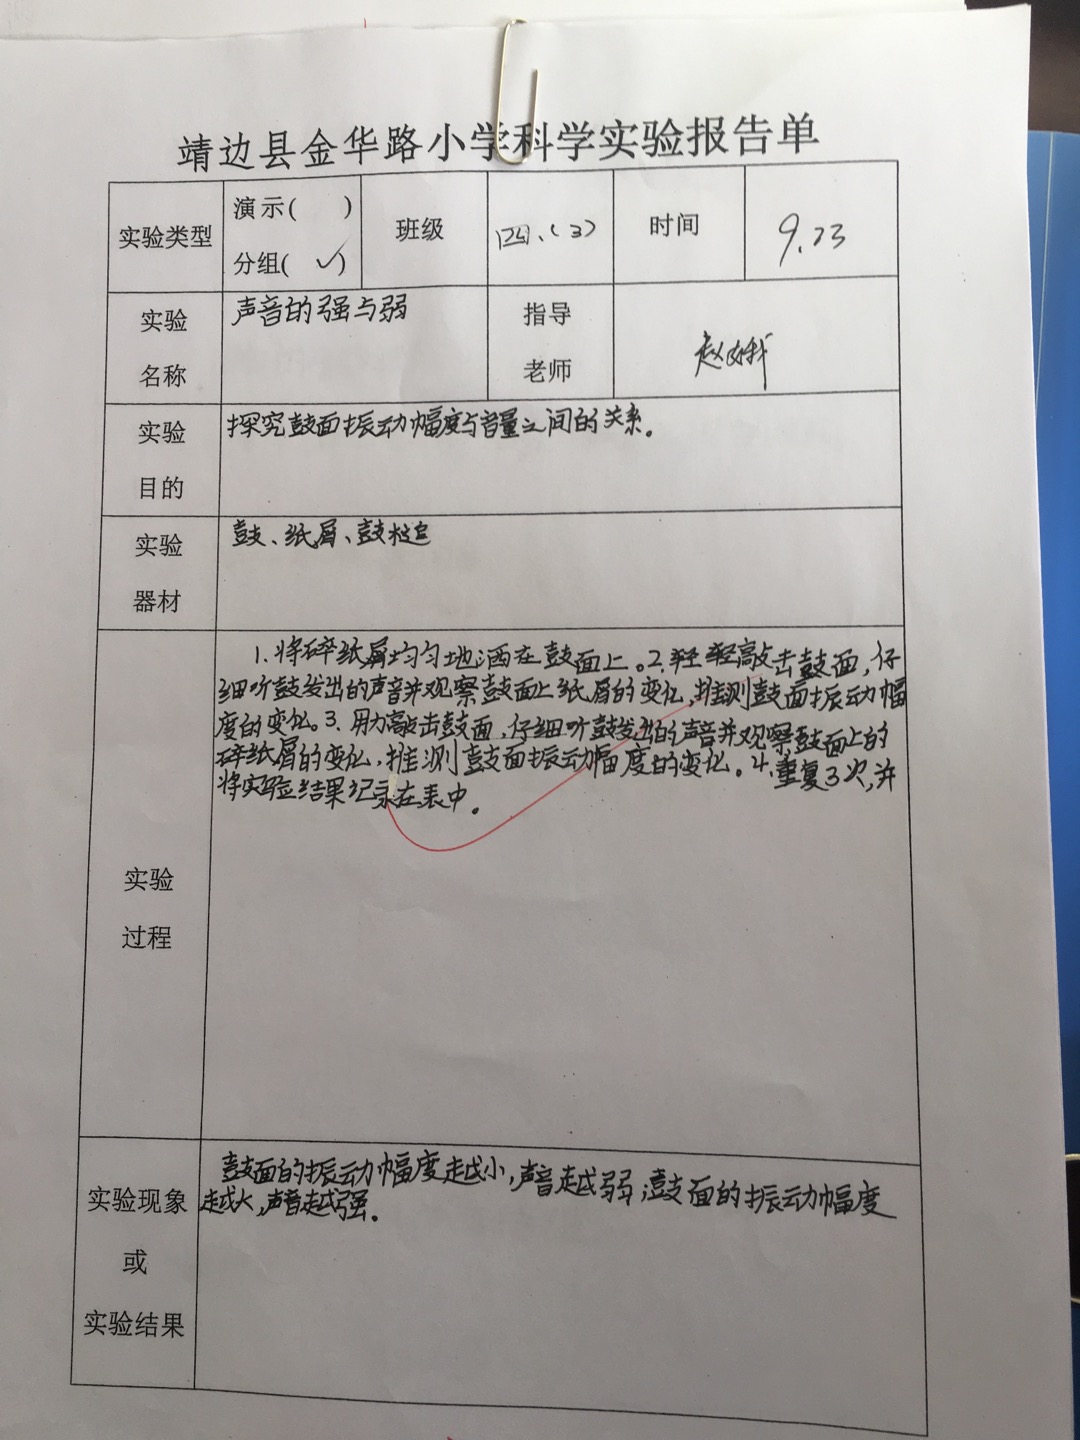 靖边县金华路小学科学实验报告单
实验类型
演示( )
分组( ✓)
班级
四、(3)
时间
9.23
实验
名称
声音的强与弱
指导
老师
实验
目的
探究鼓面振动幅度与音量之间的关系。
实验
器材
鼓、纸屑、鼓槌
实验
过程
1.将碎纸屑均匀地洒在鼓面上。2.轻轻敲击鼓面,仔
细听鼓发出的声音并观察鼓面上纸屑的变化,推测鼓面振动幅
度的变化。3.用力敲击鼓面,仔细听鼓发出的声音并观察鼓面上的
碎纸屑的变化,推测鼓面振动幅度的变化。4.重复3次,并
将实验结果记录在表中。
实验现象
或
实验结果
鼓面的振动幅度越小,声音越弱;鼓面的振动幅度
越大,声音越强。